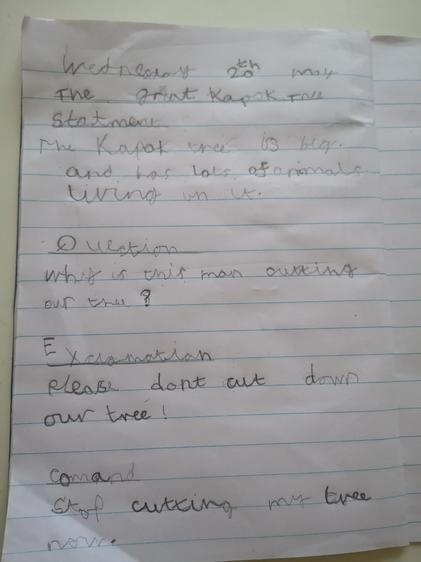 Wednesday 20th may
The grint Kapok Tree
Statment
The Kapok tree is big.
and has lots of animals
living in it.
Question
Why is this man cutting
our tree?
Exclamation
please dont cut down
our tree!
comand
Stop cutting my tree
now.